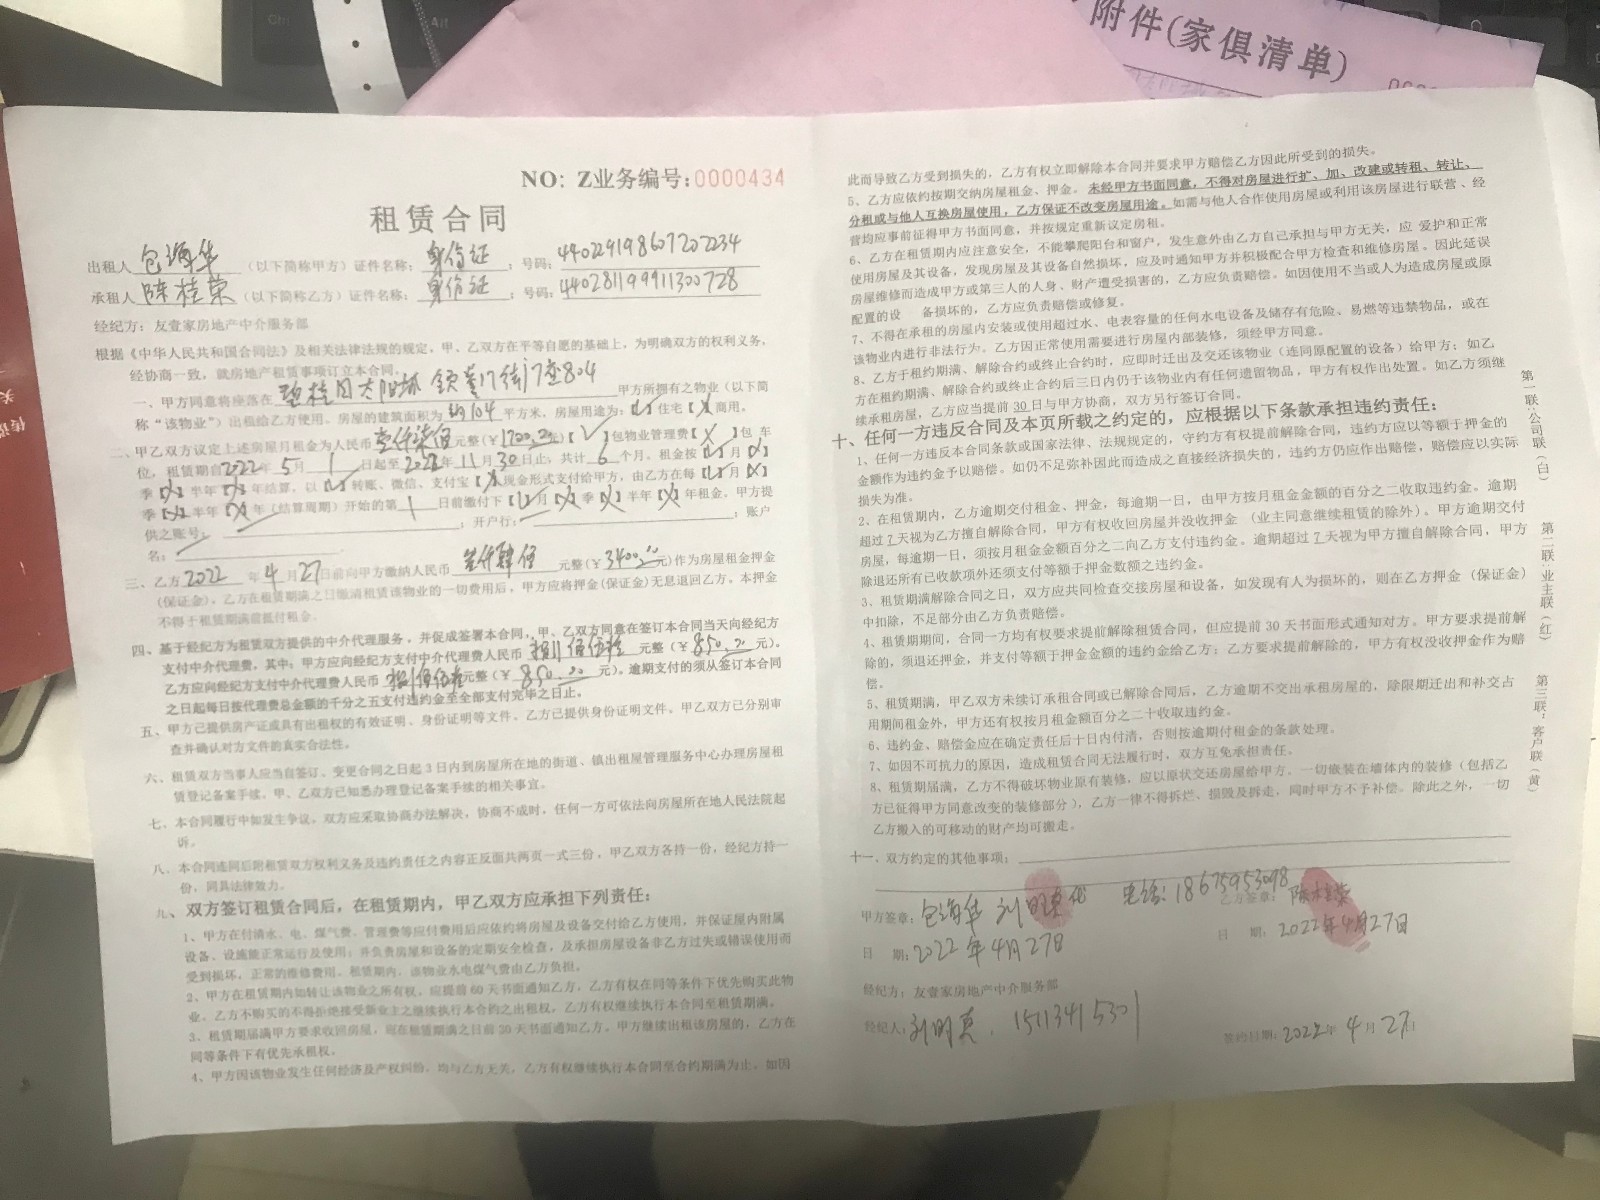 Ctrl
Alt
附件(家俱清单)
NO: Z业务编号:0000434
租赁合同
出租人 包海华 (以下简称甲方) 证件名称: 身份证 ; 号码: 440229198607202234
承租人 陈桂荣 (以下简称乙方) 证件名称: 身份证 ; 号码: 440281199911300728
经纪方: 友壹家房地产中介服务部
根据《中华人民共和国合同法》及相关法律法规的规定, 甲、乙双方在平等自愿的基础上, 为明确双方的权利义务,
经协商一致, 就房地产租赁事项订立本合同。
一、甲方同意将座落在 碧桂园太阳城 17街7座804 甲方所拥有之物业 (以下简
称“该物业”) 出租给乙方使用。房屋的建筑面积为 约104 平方米, 房屋用途为:【✓】住宅【✗】商用。
二、甲乙双方议定上述房屋月租金为人民币 壹仟柒佰 元整(¥1700.00元)【✓】包物业管理费【✗】包 车
位, 租赁期自2022年 5月 1 日起至 2022年 11月 30日止, 共计 6 个月。租金按【✓】月【✗】
季【✗】半年【✗】年结算, 以【✓】转账、微信、支付宝【✗】现金形式支付给甲方, 由乙方在每【✓】月【✗】
季【✗】半年【✗】年 (结算周期) 开始的第 1 日前缴付下【✓】月【✗】季【✗】半年【✗】年租金。甲方提
供之账号: ; 开户行: ; 账户
名:
三、乙方 2022 年 4 月 27日前向甲方缴纳人民币 叁仟肆佰 元整(¥3400.00元)作为房屋租金押金
(保证金)。乙方在租赁期满之日缴清租赁该物业的一切费用后, 甲方应将押金(保证金)无息退回乙方。本押金
不得于租赁期满前抵付租金。
四、基于经纪方为租赁双方提供的中介代理服务, 并促成签署本合同, 甲、乙双方同意在签订本合同当天向经纪方
支付中介代理费, 其中: 甲方应向经纪方支付中介代理费人民币 捌佰伍拾 元整 (¥850.00元),
乙方应向经纪方支付中介代理费人民币 捌佰伍拾 元整(¥850.00元), 逾期支付的须从签订本合同
之日起每日按代理费总金额的千分之五支付违约金至全部支付完毕之日止。
五、甲方已提供房产证或具有出租权的有效证明、身份证明等文件。乙方已提供身份证明文件。甲乙双方已分别审
查并确认对方文件的真实合法性。
六、租赁双方当事人应当自签订、变更合同之日起3日内到房屋所在地的街道、镇出租屋管理服务中心办理房屋租
赁登记备案手续。甲、乙双方已知悉办理登记备案手续的相关事宜。
七、本合同履行中如发生争议, 双方应采取协商办法解决, 协商不成时, 任何一方可依法向房屋所在地人民法院起
诉。
八、本合同连同后附租赁双方权利义务及违约责任之内容正反面共两页一式三份, 甲乙双方各持一份, 经纪方持一
份, 同具法律效力。
九、双方签订租赁合同后, 在租赁期内, 甲乙双方应承担下列责任:
1、甲方在付清水、电、煤气费、管理费等应付费用后应依约将房屋及设备交付给乙方使用, 并保证屋内附属
设备、设施能正常运行及使用; 并负责房屋和设备的定期安全检查, 及承担房屋设备非乙方过失或错误使用而
受到损坏, 正常的维修费用。租赁期内, 该物业水电煤气费由乙方负担。
2、甲方在租赁期内如转让该物业之所有权, 应提前60天书面通知乙方, 乙方有权在同等条件下优先购买此物
业。乙方不购买的不得拒绝接受新业主之继续执行本合约之出租权, 乙方有权继续执行本合同至租赁期满。
3、租赁期届满甲方要求收回房屋, 则在租赁期满之日前30天书面通知乙方。甲方继续出租该房屋的, 乙方在
同等条件下有优先承租权。
4、甲方因该物业发生任何经济及产权纠纷, 均与乙方无关, 乙方有权继续执行本合同至合约期满为止。如因
此而导致乙方受到损失的, 乙方有权立即解除本合同并要求甲方赔偿乙方因此所受到的损失。
5、乙方应依约按期交纳房屋租金、押金。未经甲方书面同意, 不得对房屋进行扩、加、改建或转租、转让、
分租或与他人互换房屋使用, 乙方保证不改变房屋用途。如需与他人合作使用房屋或利用该房屋进行联营、经
营均应事前征得甲方书面同意, 并按规定重新议定房租。
6、乙方在租赁期内应注意安全, 不能攀爬阳台和窗户, 发生意外由乙方自己承担与甲方无关, 应 爱护和正常
使用房屋及其设备, 发现房屋及其设备自然损坏, 应及时通知甲方并积极配合甲方检查和维修房屋。因此延误
房屋维修而造成甲方或第三人的人身、财产遭受损害的, 乙方应负责赔偿。如因使用不当或人为造成房屋或原
配置的设 备损坏的, 乙方应负责赔偿或修复。
7、不得在承租的房屋内安装或使用超过水、电表容量的任何水电设备及储存有危险、易燃等违禁物品, 或在
该物业内进行非法行为。乙方因正常使用需要进行房屋内部装修, 须经甲方同意。
8、乙方于租约期满、解除合约或终止合约时, 应即时迁出及交还该物业 (连同原配置的设备) 给甲方; 如乙
方在租约期满、解除合约或终止合约后三日内仍于该物业内有任何遗留物品, 甲方有权作出处置。如乙方须继
续承租房屋, 乙方应当提前 30 日与甲方协商, 双方另行签订合同。
十、任何一方违反合同及本页所载之约定的, 应根据以下条款承担违约责任:
1、任何一方违反本合同条款或国家法律、法规规定的, 守约方有权提前解除合同, 违约方应以等额于押金的
金额作为违约金予以赔偿。如仍不足弥补因此而造成之直接经济损失的, 违约方仍应作出赔偿, 赔偿应以实际
损失为准。
2、在租赁期内, 乙方逾期交付租金、押金, 每逾期一日, 由甲方按月租金金额的百分之二收取违约金。逾期
超过 7 天视为乙方擅自解除合同, 甲方有权收回房屋并没收押金 (业主同意继续租赁的除外)。甲方逾期交付
房屋, 每逾期一日, 须按月租金金额百分之二向乙方支付违约金。逾期超过 7 天视为甲方擅自解除合同, 甲方
除退还所有已收款项外还须支付等额于押金数额之违约金。
3、租赁期满解除合同之日, 双方应共同检查交接房屋和设备, 如发现有人为损坏的, 则在乙方押金 (保证金)
中扣除, 不足部分由乙方负责赔偿。
4、租赁期期间, 合同一方均有权要求提前解除租赁合同, 但应提前 30 天书面形式通知对方。甲方要求提前解
除的, 须退还押金, 并支付等额于押金金额的违约金给乙方; 乙方要求提前解除的, 甲方有权没收押金作为赔
偿。
5、租赁期满, 甲乙双方未续订承租合同或已解除合同后, 乙方逾期不交出承租房屋的, 除限期迁出和补交占
用期间租金外, 甲方还有权按月租金额百分之二十收取违约金。
6、违约金、赔偿金应在确定责任后十日内付清, 否则按逾期付租金的条款处理。
7、如因不可抗力的原因, 造成租赁合同无法履行时, 双方互免承担责任。
8、租赁期届满, 乙方不得破坏物业原有装修, 应以原状交还房屋给甲方。一切嵌装在墙体内的装修 (包括乙
方已征得甲方同意改变的装修部分), 乙方一律不得拆烂、损毁及拆走, 同时甲方不予补偿。除此之外, 一切
乙方搬入的可移动的财产均可搬走。
十一、双方约定的其他事项:
甲方签章: 包海华 刘明英代 电话: 18675953098
乙方签章: 陈桂荣
日 期: 2022年4月27日
日 期: 2022年4月27日
经纪方: 友壹家房地产中介服务部
经纪人: 刘明英. 15113415301
签约日期: 2022年 4月 27日
第一联:公司联(白)
第二联:业主联(红)
第三联:客户联(黄)